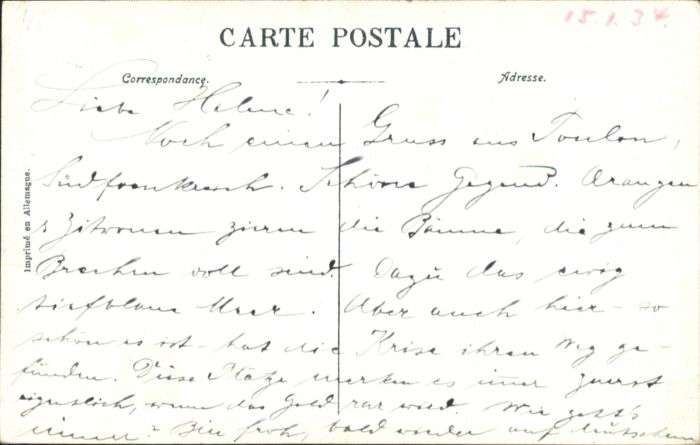 15.1.34.
CARTE POSTALE
Correspondance.
Adresse.
Imprimé en Allemagne.
Liebe Helene!
Noch einen Gruss aus Toulon,
Südfrankreich. Schöne Gegend. Orangen
& Zitronen zieren die Bäume, die zum
Brechen voll sind. Dazu das ewig
tiefblaue Meer. Aber auch hier - so
schön es ist - hat die Krise ihren Weg ge-
funden. Diese Plätze merken es immer zuerst
eigentlich, wenn das Geld rar wird. Wie geht's
immer? Bin froh, bald wieder auf deutschem